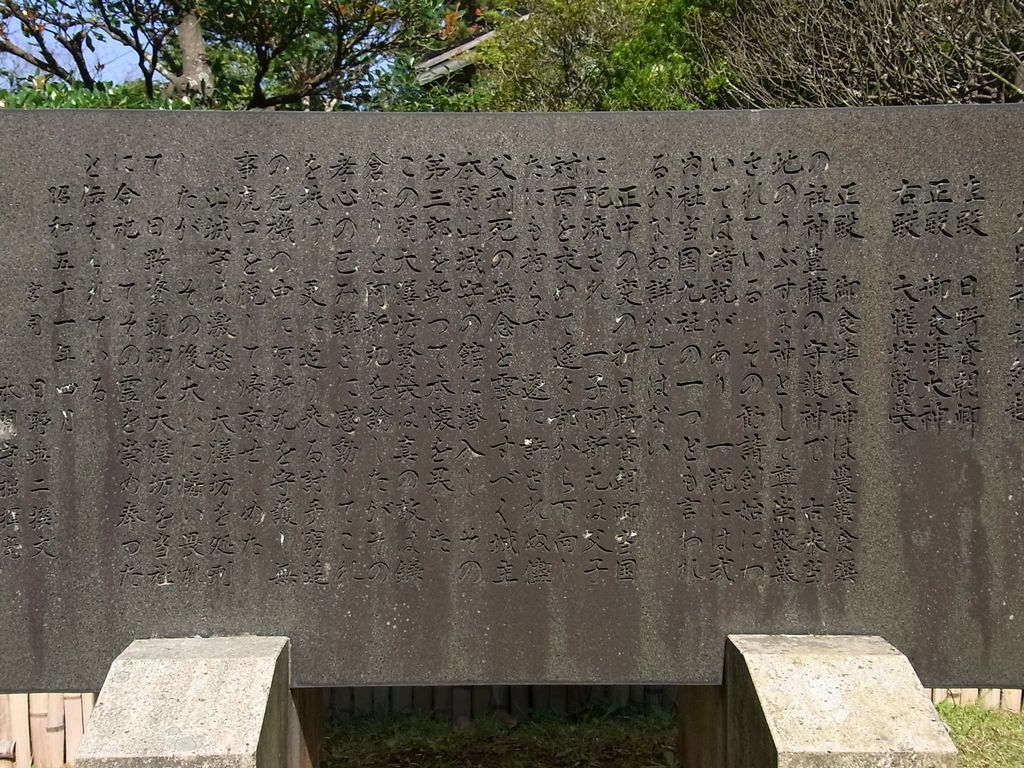 左殿 日野資朝卿
正殿 御食津大神
右殿 大膳坊賢栄
正殿 御食津大神は農業食饌
の祖神豊穣の守護神で 古来当
地のうぶすな神として尊崇敬慕
されている その勧請創始につ
いては諸説があり 一説には式
内社当国九社の一つとも言われ
るがなお詳かではない
正中の変の折日野資朝卿当国
に配流され 一子阿新丸は父子
対面を求めて遥々都から下向し
たにも拘らず 遂に許されぬ儘
父刑死の無念を霽らすべく城主
本間山城守の館に潜入し その
第三郎を斬って本懐を果した
この間大膳坊賢栄は真の敵は鎌
倉なりと阿新丸を諭したがその
孝心の已み難きに感動してこれ
を扶け 更に迫り来る討手窮追
の危機の中に阿新丸を守護し無
事虎口を脱して帰京せしめた
山城守は激怒し大膳坊を処刑
したが その後大いに悔い畏れ
て 日野資朝卿と大膳坊を当社
に合祀してその霊を崇め奉った
と伝えられている
昭和五十一年四月
宮司 日野典二撰文
本間守拙